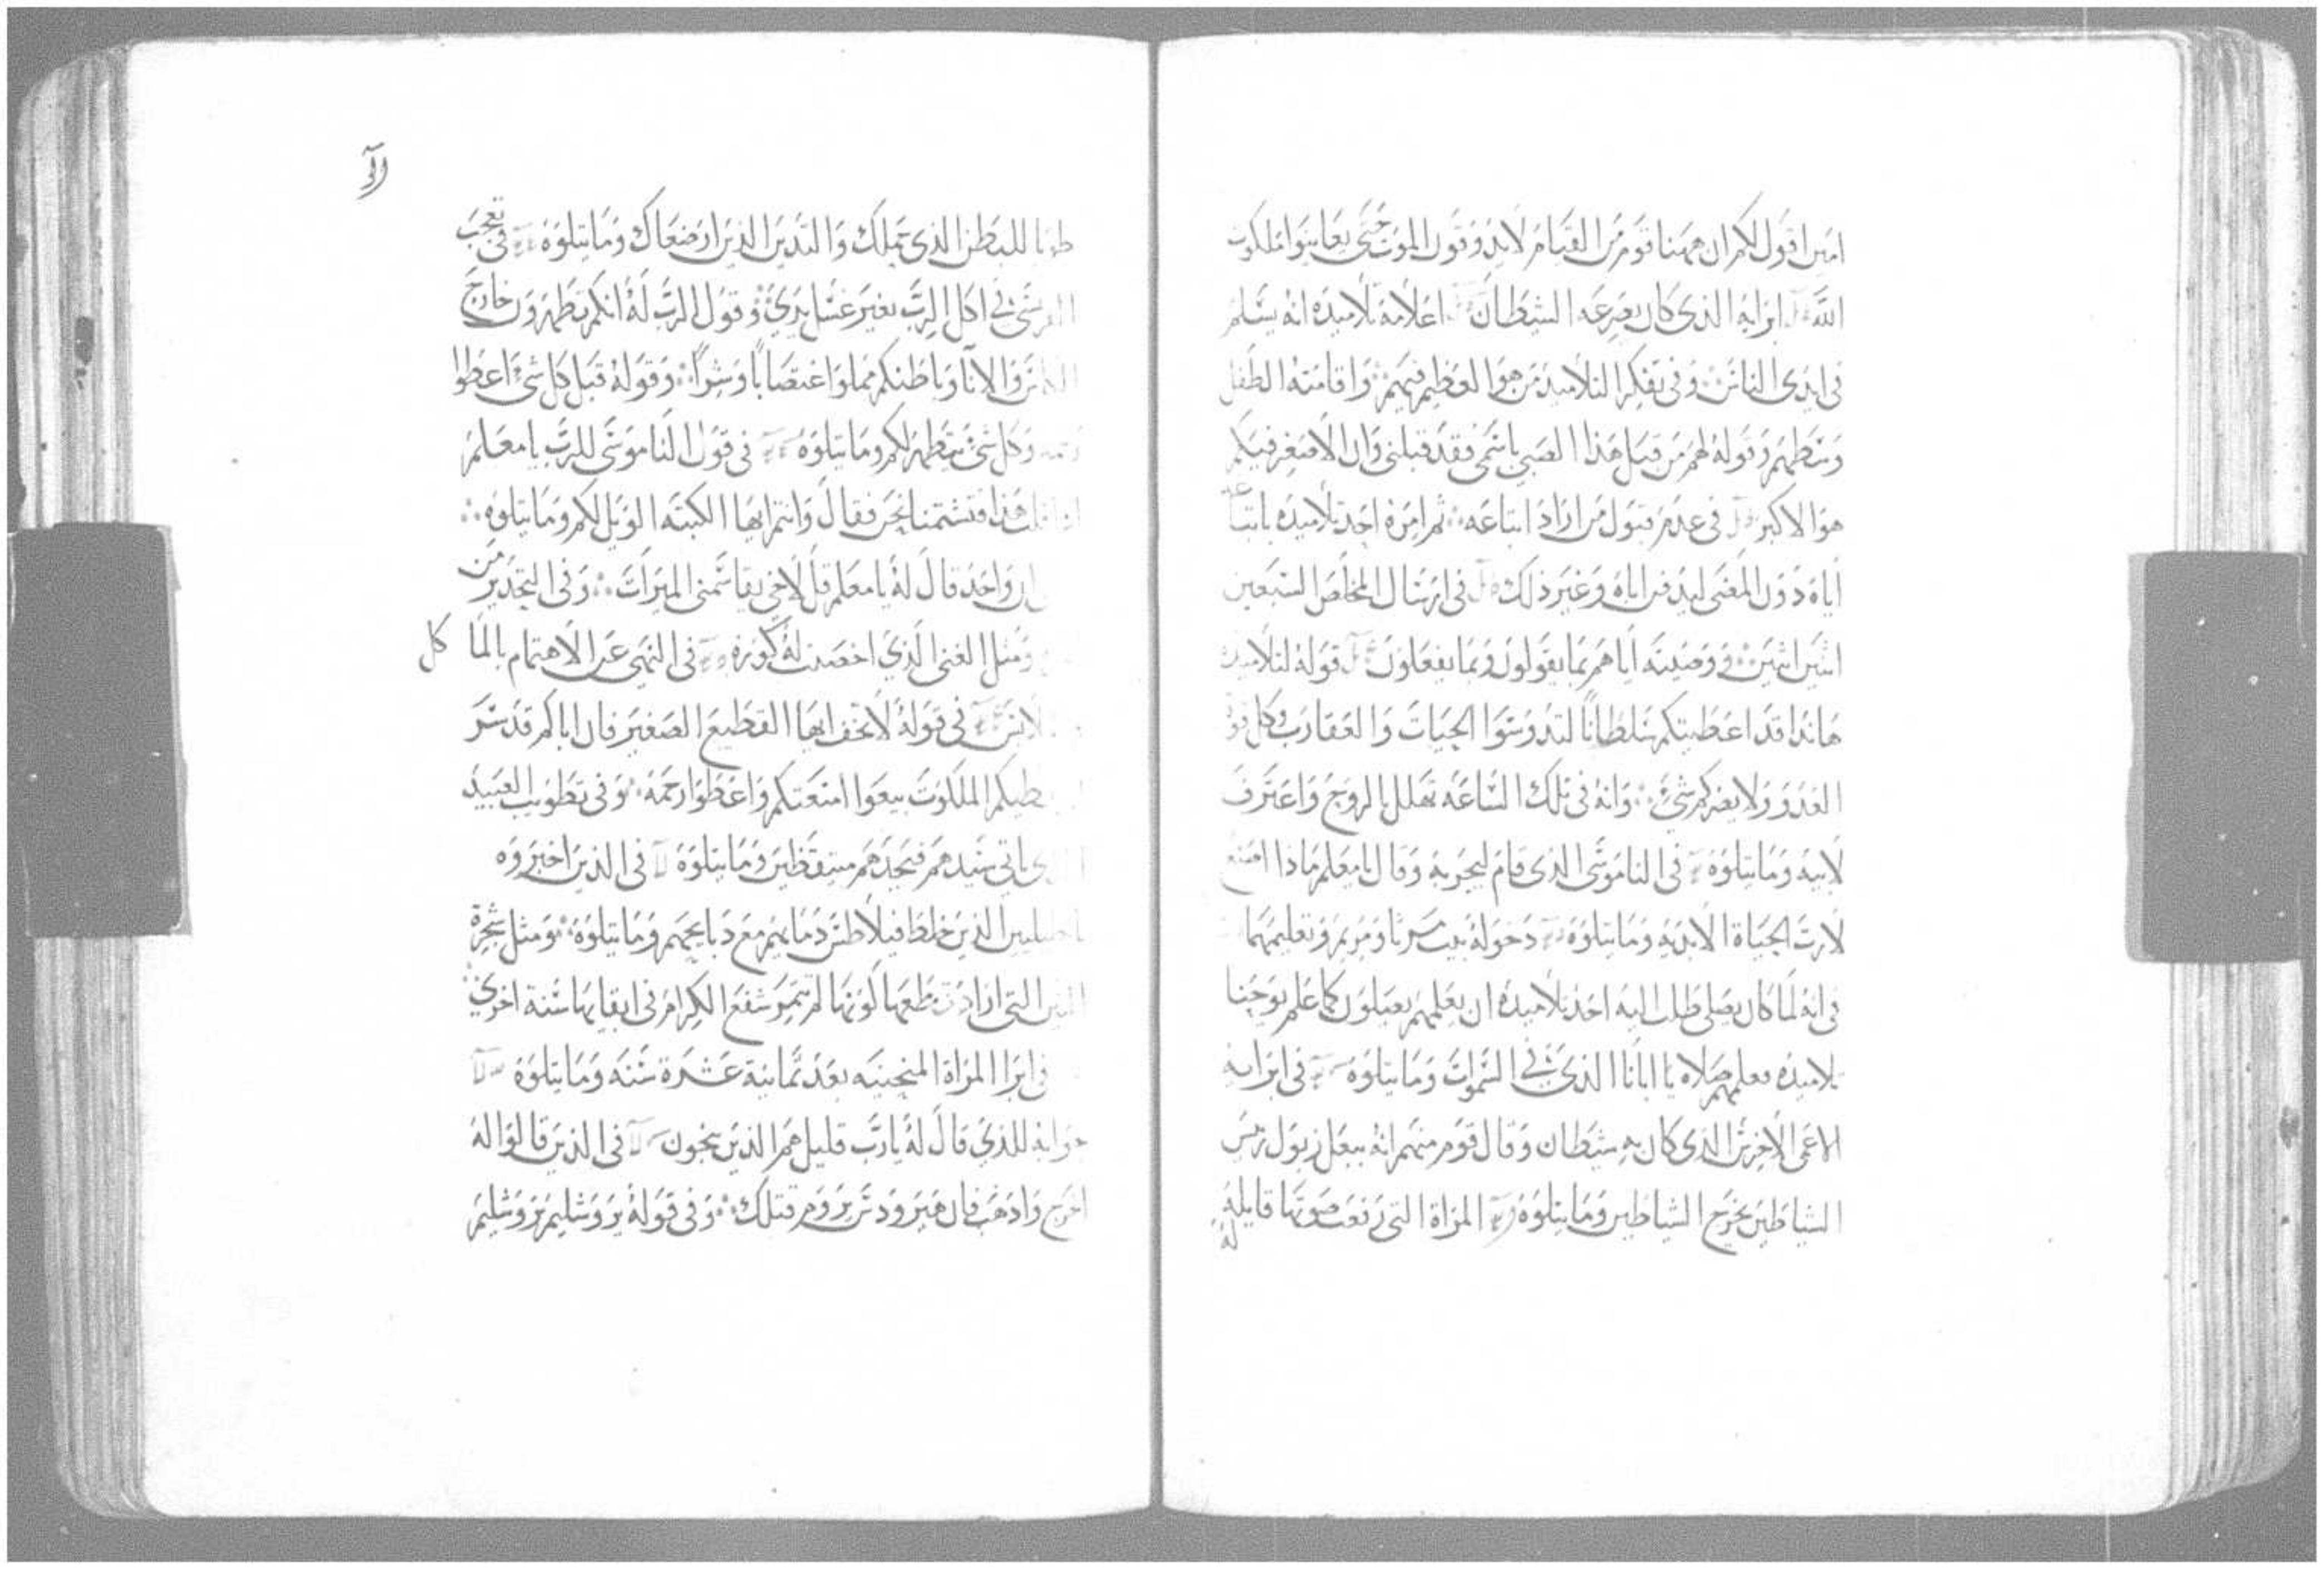 امين اقول لكم ان ههنا قوم من القيام لا يذوقون الموت حتى يعاينوا ملكوت
الله ابرايه الذى كان يصرعه الشيطان اعلامه تلاميذه انه يسلم
فى ايدى الناس وفى تفكر التلاميذ من هو العظيم فيهم واقامته الطفل
وسطهم وقوله لهم من قبل هذا الصبى باسمى فقد قبلنى وان الاصغر فيكم
هو الاكبر فى عدم قبول من اراد اتباعه ثم امره احد تلاميذه باتباعه
اياه دون المضى ليدفن اباه وغير ذلك فى ارسال المخلص السبعين
اثنين اثنين ووصيته اياهم بما يقولون وبما يفعلون قوله لتلاميذه
هانذا قد اعطيتكم سلطانا لتدوسوا الحيات والعقارب وكل قوة
العدو ولا يضركم شئ وانه فى تلك الساعة تهلل بالروح واعترف
لابيه وما يتلوه فى الناموسى الذى قام ليجربه وقال يا معلم ماذا اصنع
لارث الحياة الابدية وما يتلوه دخوله بيت مرثا ومريم وتعليمهما
فى انه لما كان يصلى طلب اليه احد تلاميذه ان يعلمهم يصلون كما علم يوحنا
تلاميذه فعلمهم صلاة يا ابانا الذى فى السموات وما يتلوه فى ابرايه
الاعمى الاخرس الذى كان به شيطان وقال قوم منهم انه ببعل زبول ريس
الشياطين يخرج الشياطين وما يتلوه المراة التى رفعت صوتها قايلة
له
طوبا للبطن الذى حملك والثديين الذين ارضعاك وما يتلوه فى تعجب
الفريسى فى اكل الرب بغير غسل يديه وقول الرب له انكم تطهرون خارج
الكاس والانا وباطنكم مملوا اغتصابا وشرا وقوله قبل كل شئ اعطوا
رحمه وكل شئ يتطهر لكم وما يتلوه فى قول الناموسى للرب يا معلم
اذا قلت هذا فتشتمنا نحن فقال وانتم ايها الكتبه الويل لكم وما يتلوه
ان واحد قال له يا معلم قل لاخى يقاسمنى الميراث وفى التحذير من
ومثل الغنى الذى اخصبت له كورة فى النهى عن الاهتمام بالماكل
فى قوله لا تخف ايها القطيع الصغير فان اباكم قد سر
يعطيكم الملكوت بيعوا امتعتكم واعطوا رحمه وفى تطويب العبيد
ياتى سيدهم فيجدهم مستيقظين وما يتلوه فى الذين اخبروه
الذين خلط فيلاطس دمايهم مع دبايحهم وما يتلوه ومثل شجرة
التين التى اراد قطعها لكونها لم تثمر وشفع الكرام فى ابقايها سنة اخرى
فى ابرا المراة المنحنيه بعد ثمانية عشرة سنه وما يتلوه
جوابه للذى قال له يارب قليل هم الذين ينجون فى الذين قالوا له
اخرج واذهب فان هيرودس يروم قتلك وفى قوله يروشليم يروشليم